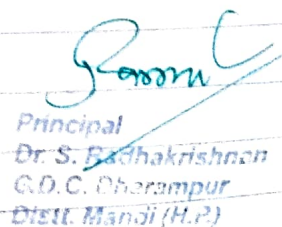 Principal
Dr. S. Radhakrishnan
G.D.C. Dharampur
Distt. Mandi (H.P.)